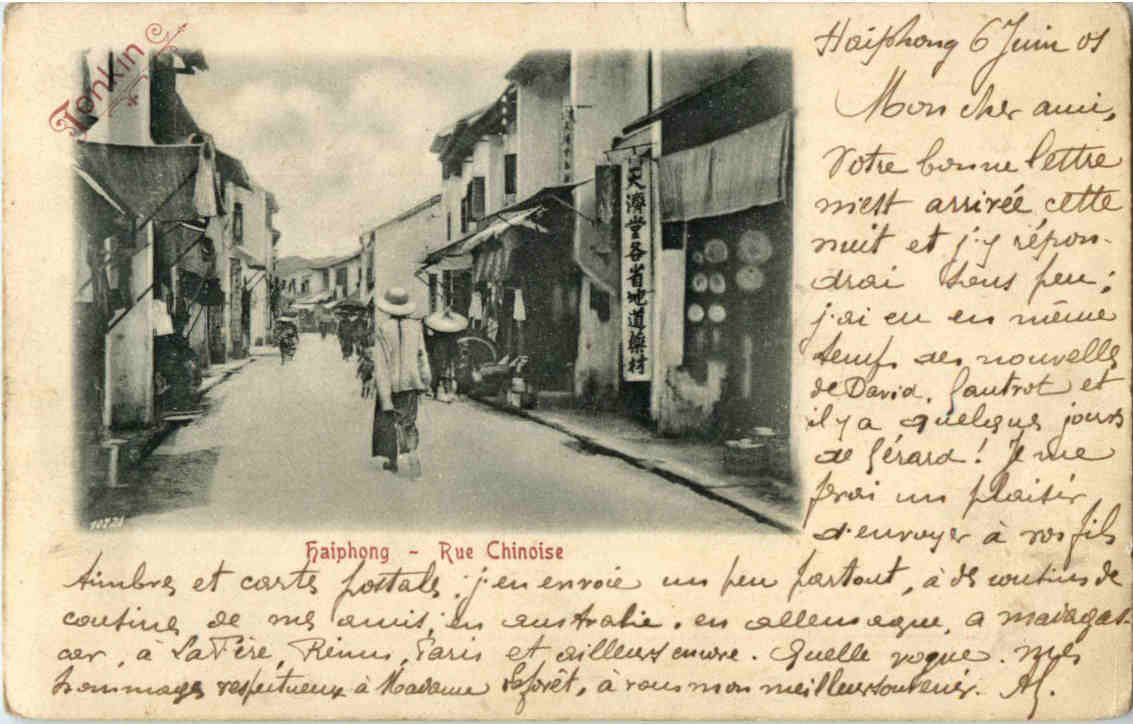 Tonkin
天濟堂各省地道藥材
10721
Haiphong - Rue Chinoise
Haiphong 6 Juin 01
Mon cher ami,
Votre bonne lettre
m'est arrivée cette
nuit et j'y répon-
drai sous peu;
j'ai eu en même
temps des nouvelles
de David, Gautrot et
il y a quelques jours
de Gérard! Je me
ferai un plaisir
d'envoyer à vos fils
timbres et cartes postales; j'en envoie un peu partout, à des cousins de
cousines de mes amis, en australie, en allemagne, a madagas-
car, à La Fère, Reims, Paris et ailleurs encore. Quelle vogue. mes
hommages respectueux à Madame Laforêt, à vous mon meilleur souvenir.